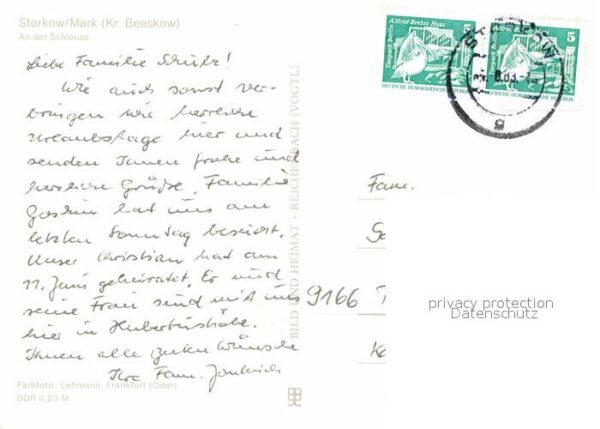 Storkow/Mark (Kr. Beeskow)
An der Schleuse
Liebe Familie
Wie auch sonst ver-
bringen wir herrliche
Urlaubstage hier und
senden Ihnen frohe und
herzliche Grüße. Familie
hat uns am
letzten Sonntag besucht.
Unser Christian hat am
11. Juni geheiratet. Er und
seine Frau sind mit uns
hier in Hubertushöhe.
Ihnen alle guten Wünsche
Ihre Fam.
Farbfoto: Lehmann, Frankfurt (Oder)
DDR 0,20 M
BILD UND HEIMAT · REICHENBACH (VOGTL)
Alfred Brehm Haus
Tierpark Berlin
5
DEUTSCHE DEMOKRATISCHE REPUBLIK
Alfred Brehm Haus
Tierpark Berlin
5
DEUTSCHE DEMOKRATISCHE REPUBLIK
STORKOW
Fam.
9166
privacy protection
Datenschutz